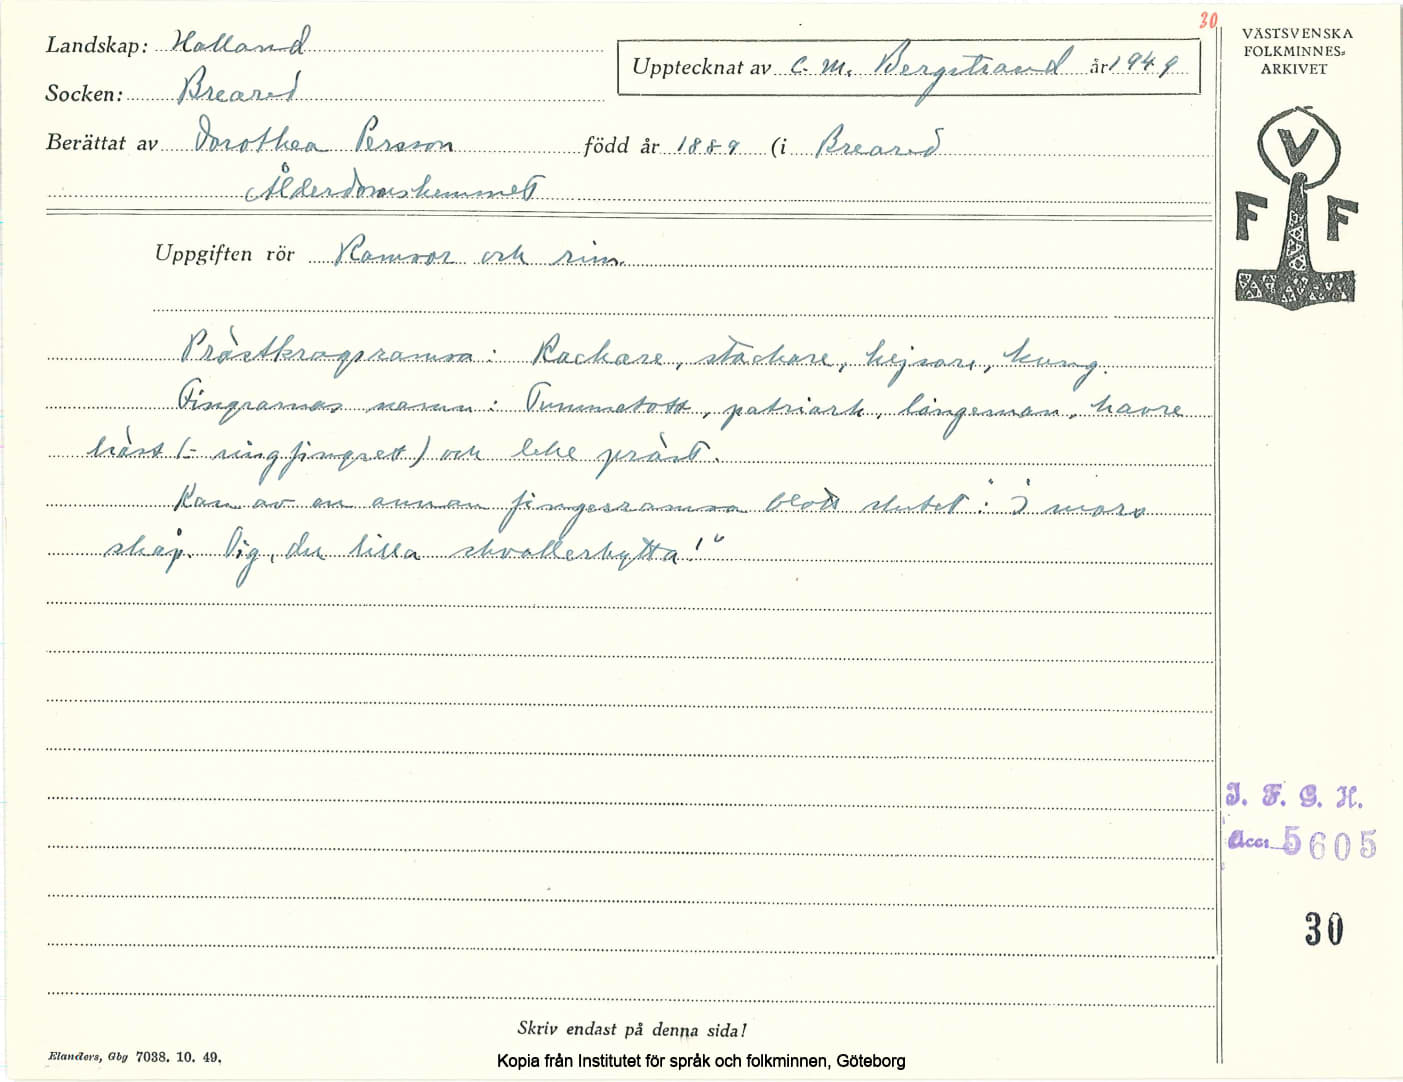 30
Landskap: Halland
Upptecknat av C. M. Bergstrand år 1949
Socken: Breared
Berättat av Dorothea Persson född år 1889 (i Breared
Ålderdomshemmet
Uppgiften rör Ramsor och rim.
Prästkragsramsa: Rackare, stackare, kejsare, kung.
Fingrarnas namn: Tummetott, långeman, havre
häst (= ringfingret) och lelle präst.
Kan av en annan fingerramsa blott slutet: "I mors
skåp. Dig, du lilla skvallerbytta!"
VÄSTSVENSKA
FOLKMINNES-
ARKIVET
V
F F
I. F. G. H.
Acc. 5605
30
Skriv endast på denna sida!
Elanders, Gbg 7038. 10. 49.
Kopia från Institutet för språk och folkminnen, Göteborg